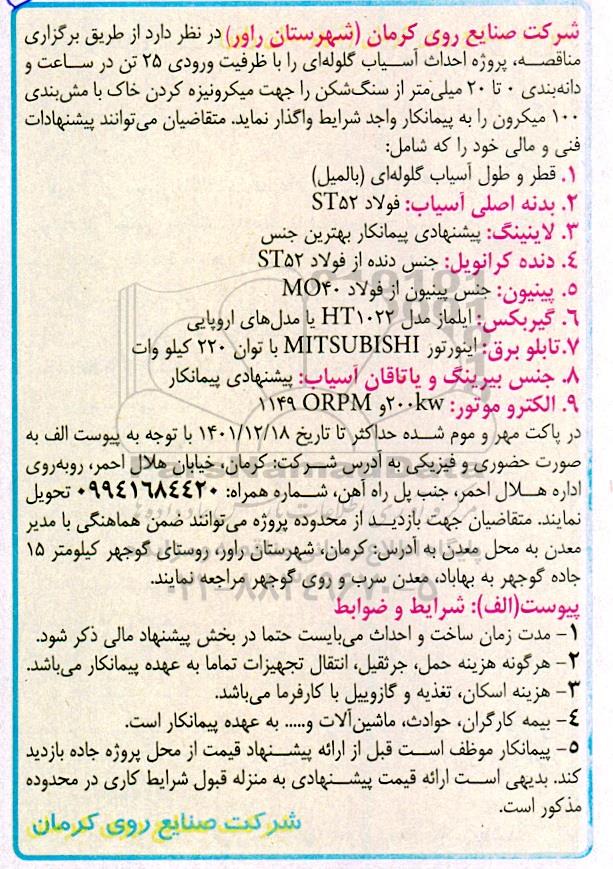 شرکت صنایع روی کرمان (شهرستان راور) در نظر دارد از طریق برگزاری
مناقصه، پروژه احداث آسیاب گلوله‌ای را با ظرفیت ورودی ۲۵ تن در ساعت و
دانه‌بندی ۰ تا ۲۰ میلی‌متر از سنگ‌شکن را جهت میکرونیزه کردن خاک با مش‌بندی
۱۰۰ میکرون را به پیمانکار واجد شرایط واگذار نماید. متقاضیان می‌توانند پیشنهادات
فنی و مالی خود را که شامل:
۱. قطر و طول آسیاب گلوله‌ای (بالمیل)
۲. بدنه اصلی آسیاب: فولاد ST۵۲
۳. لاینینگ: پیشنهادی پیمانکار بهترین جنس
۴. دنده کرانویل: جنس دنده از فولاد ST۵۲
۵. پینیون: جنس پینیون از فولاد MO۴۰
۶. گیربکس: ایلماز مدل HT۱۰۲۲ یا مدل‌های اروپایی
۷.تابلو برق: اینورتور MITSUBISHI با توان ۲۲۰ کیلو وات
۸. جنس بیرینگ و یاتاقان آسیاب: پیشنهادی پیمانکار
۹. الکترو موتور: ۲۰۰kw و ORPM ۱۱۴۹
در پاکت مهر و موم شده حداکثر تا تاریخ ۱۴۰۱/۱۲/۱۸ با توجه به پیوست الف به
صورت حضوری و فیزیکی به آدرس شرکت: کرمان، خیابان هلال احمر، روبه‌روی
اداره هلال احمر، جنب پل راه آهن، شماره همراه: ۰۹۹۴۱۶۸۴۴۲۰ تحویل
نمایند. متقاضیان جهت بازدید از محدوده پروژه می‌توانند ضمن هماهنگی با مدیر
معدن به محل معدن به آدرس: کرمان، شهرستان راور، روستای گوجهر کیلومتر ۱۵
جاده گوجهر به بهاباد، معدن سرب و روی گوجهر مراجعه نمایند.
پیوست(الف): شرایط و ضوابط
۱- مدت زمان ساخت و احداث می‌بایست حتما در بخش پیشنهاد مالی ذکر شود.
۲- هرگونه هزینه حمل، جرثقیل، انتقال تجهیزات تماما به عهده پیمانکار می‌باشد.
۳- هزینه اسکان، تغذیه و گازوییل با کارفرما می‌باشد.
۴- بیمه کارگران، حوادث، ماشین‌آلات و..... به عهده پیمانکار است.
۵- پیمانکار موظف است قبل از ارائه پیشنهاد قیمت از محل پروژه جاده بازدید
کند. بدیهی است ارائه قیمت پیشنهادی به منزله قبول شرایط کاری در محدوده
مذکور است.
شرکت صنایع روی کرمان